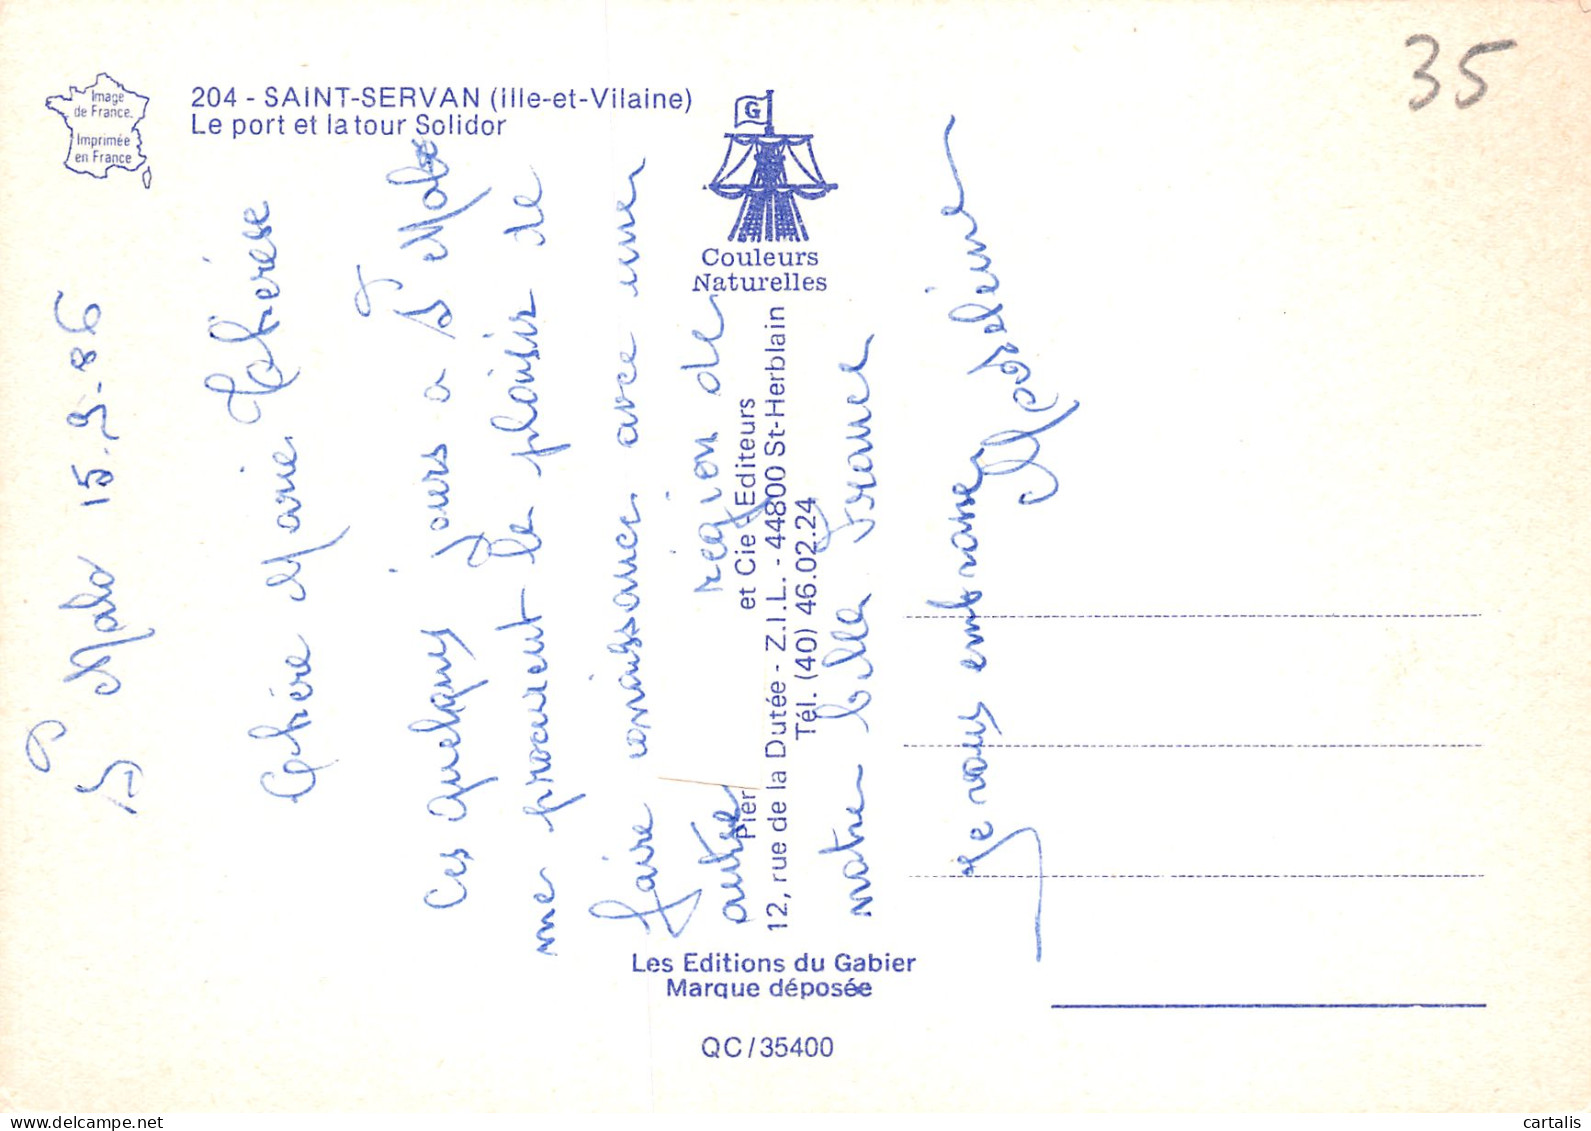 35
Image
de France.
Imprimée
en France
204 - SAINT-SERVAN (Ille-et-Vilaine)
Le port et la tour Solidor
G
Couleurs
Naturelles
St Malo 15-9-86
Chère Marie Thérèse
Ces quelques jours a St Malo
me procurent le plaisir de
faire connaissance avec une
autre région de
notre belle France
Je vous embrasse
Madeleine
Pier et Cie Editeurs
12, rue de la Dutée - Z.I.L. - 44800 St-Herblain
Tél. (40) 46.02.24
Les Editions du Gabier
Marque déposée
QC/35400
delcampe.net
cartalis